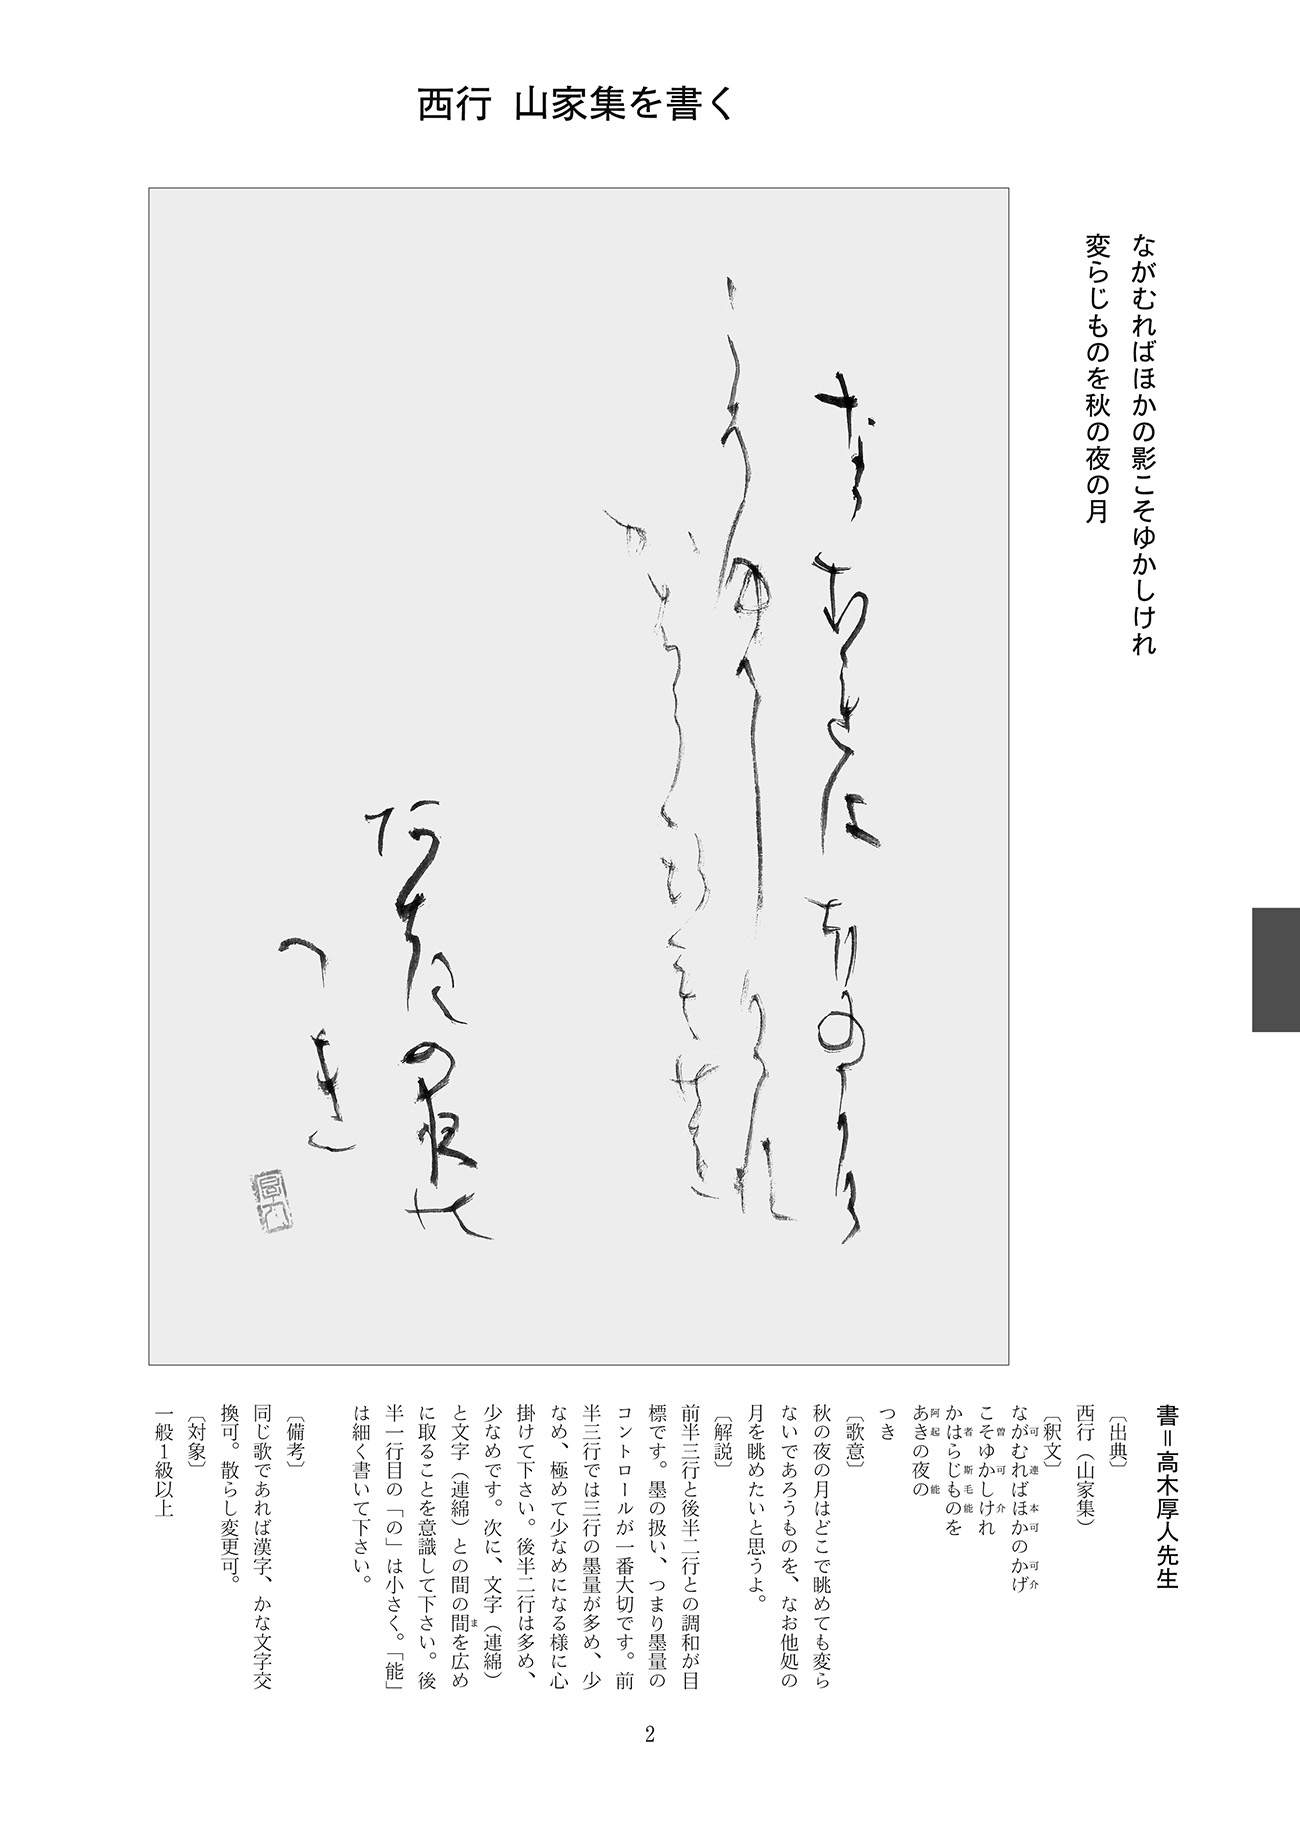 西行 山家集を書く
ながむればほかの影こそゆかしけれ
変らじものを秋の夜の月
書＝高木厚人先生
〔出典〕
西行（山家集）
〔釈文〕
ながむればほかのかげ
可連本可可介
こそゆかしけれ
曽可介
かはらじものを
者斯毛能
あきの夜の
阿起能
つき
〔歌意〕
秋の夜の月はどこで眺めても変ら
ないであろうものを、なお他処の
月を眺めたいと思うよ。
〔解説〕
前半三行と後半二行との調和が目
標です。墨の扱い、つまり墨量の
コントロールが一番大切です。前
半三行では三行の墨量が多め、少
なめ、極めて少なめになる様に心
掛けて下さい。後半二行は多め、
少なめです。次に、文字（連綿）
と文字（連綿）との間の間を広め
ま
に取ることを意識して下さい。後
半一行目の「の」は小さく。「能」
は細く書いて下さい。
〔備考〕
同じ歌であれば漢字、かな文字交
換可。散らし変更可。
〔対象〕
一般１級以上
2